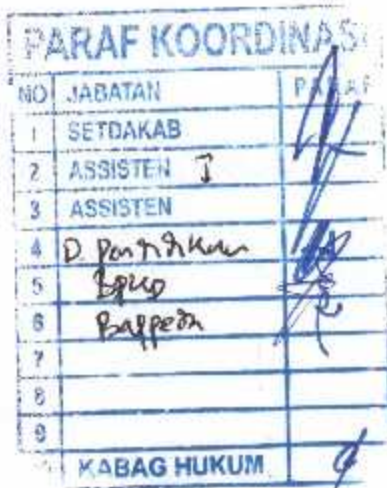 PARAF KOORDINASI
NO JABATAN PARAF
1 SETDAKAB
2 ASSISTEN I
3 ASSISTEN
4 D. Pendidikan
5 BPKD
6 Bappeda
7
8
9
KABAG HUKUM